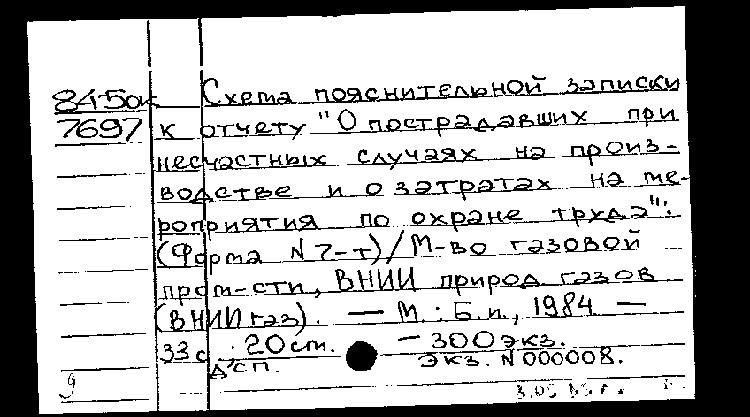 84-5оик Схема пояснительной записки
7697 к отчету "О пострадавших при
несчастных случаях на произ-
водстве и о затратах на ме-
роприятия по охране труда":
(Форма N 7-т)/М-во газовой
пром-сти, ВНИИ природ. газов
(ВНИИгаз). — М.: Б.и., 1984 —
33 с.; 20 см. — 300 экз.
ДСП. Экз. N 000008.